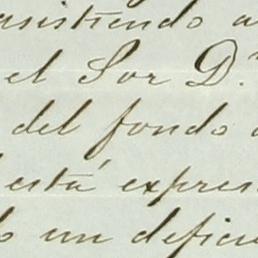 asistiendo a
el Sor D.
del fondo
está expres
un defici